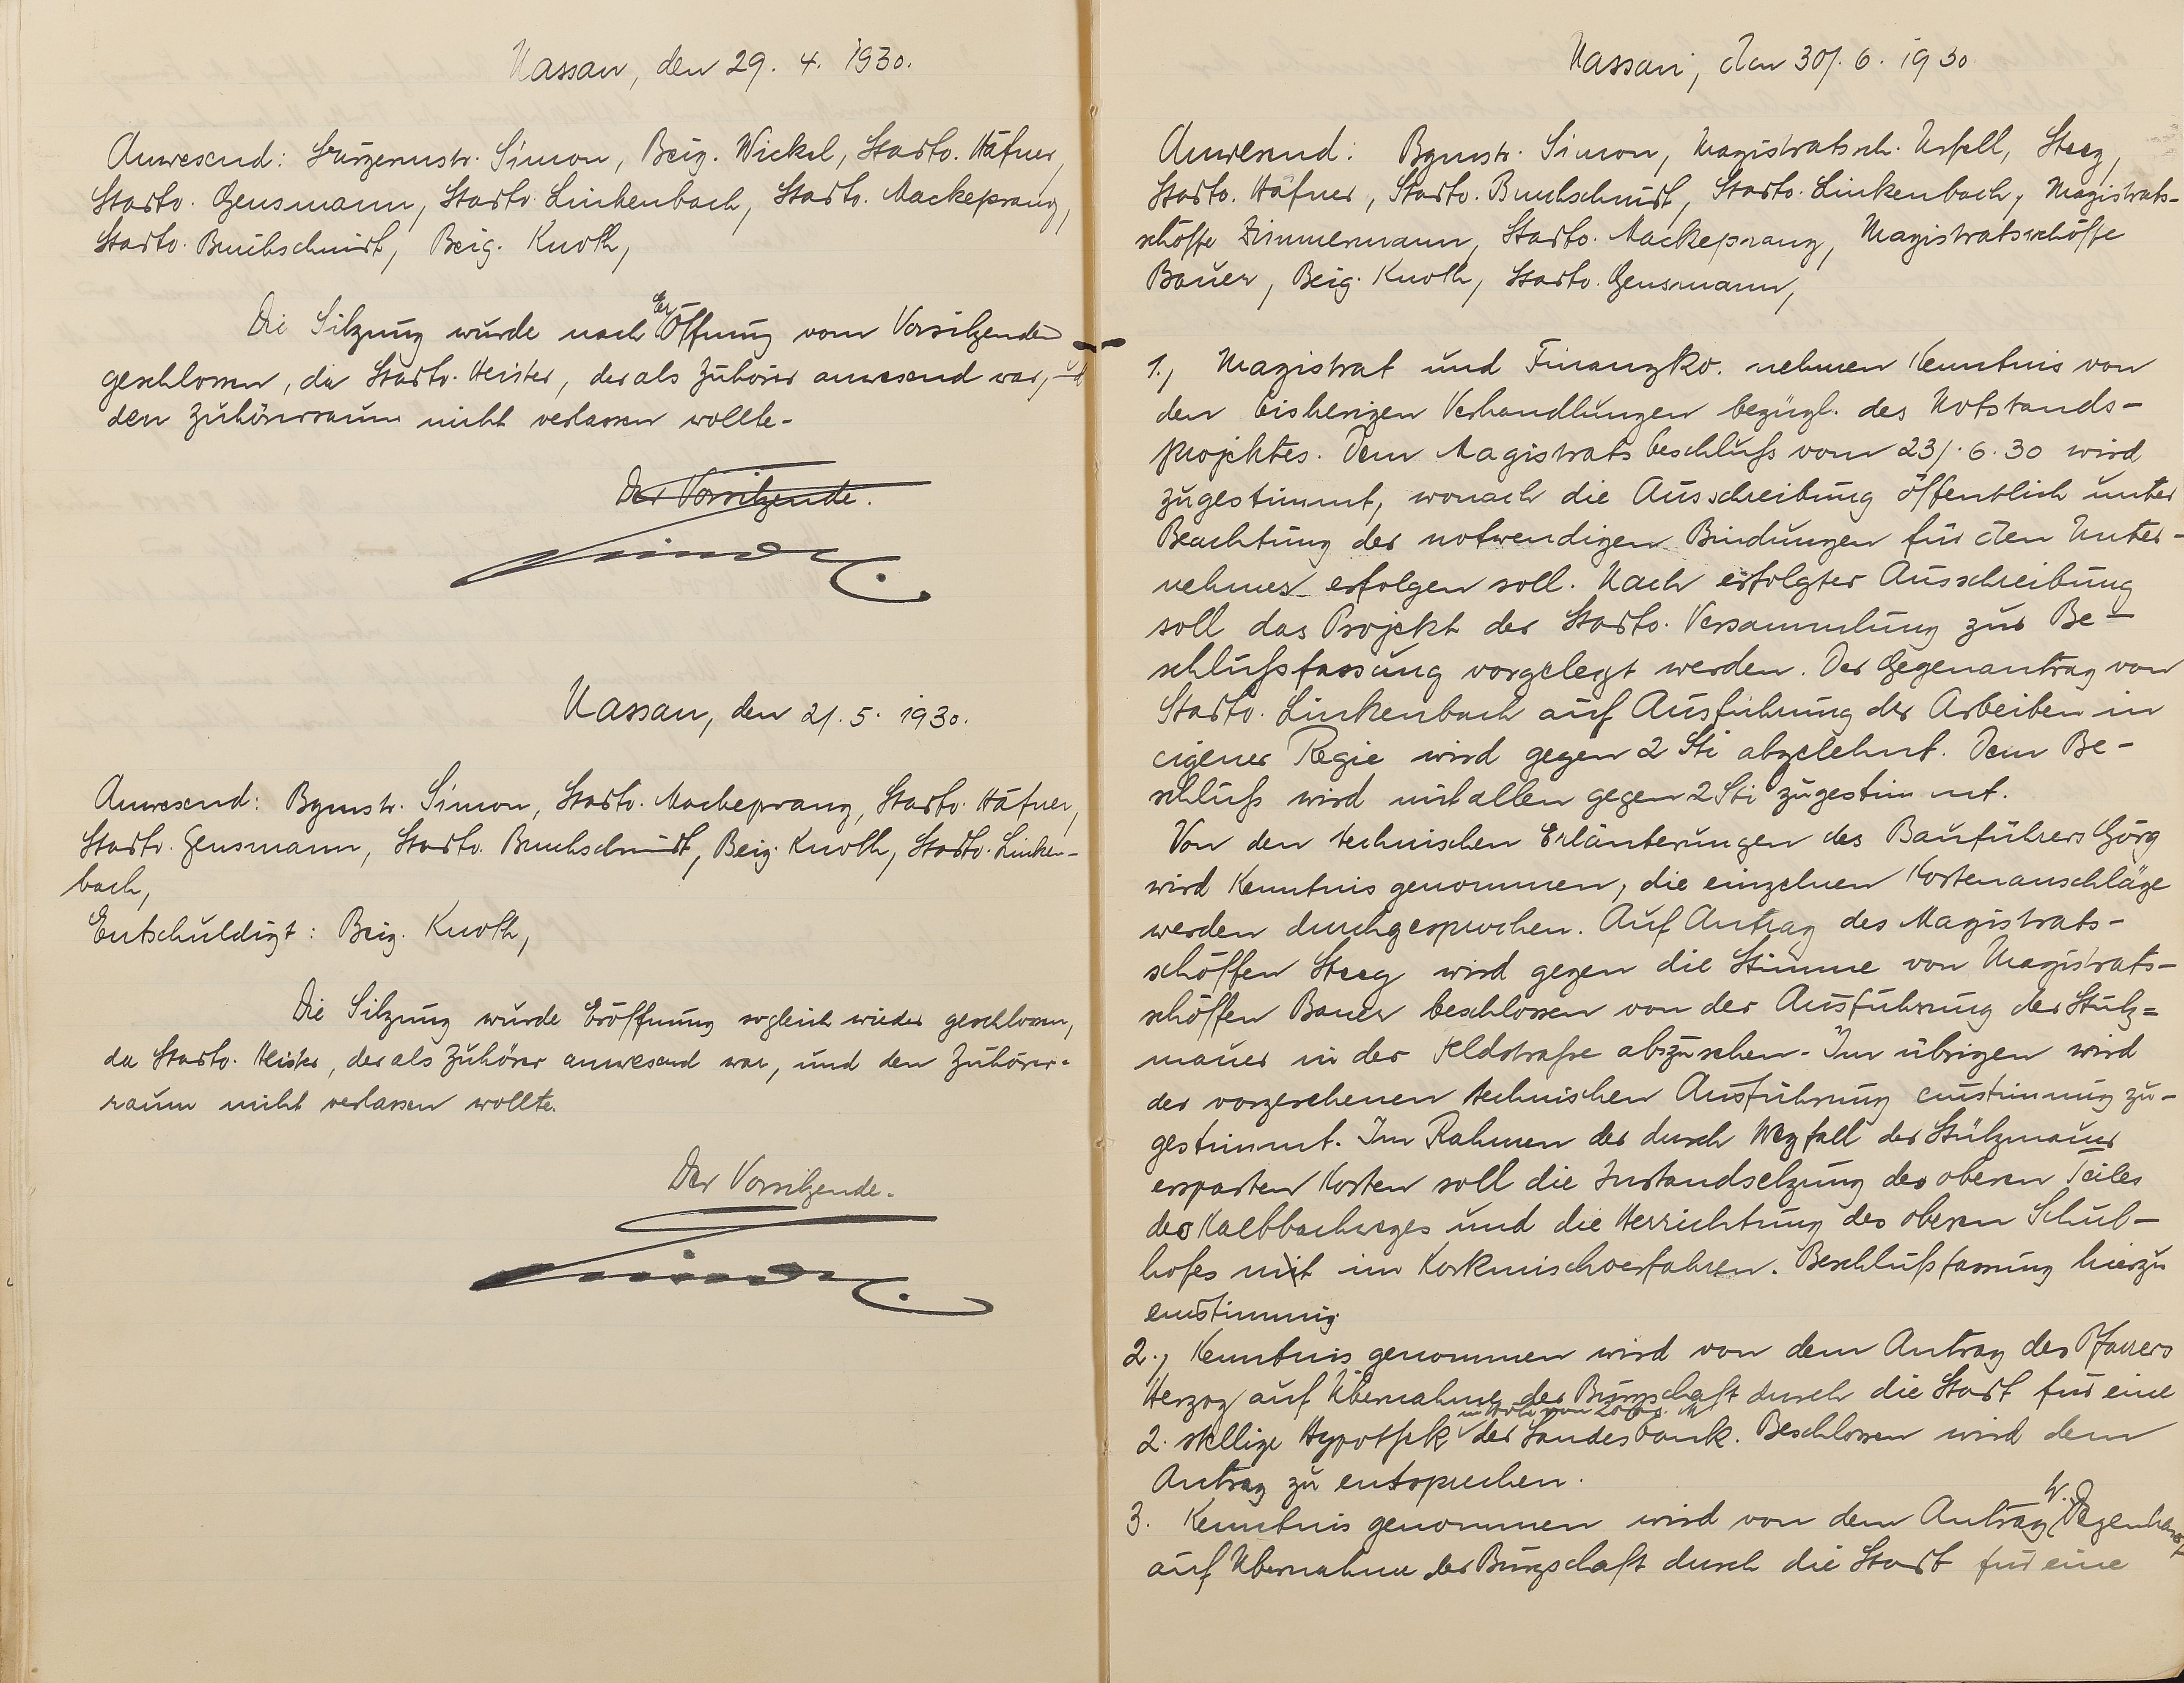 Nassau, den 29. 4. 1930.
Anwesend: Bürgermstr. Simon, Beig. Wickel, Stadtv. Häfner,
Stadtv. Gensmann, Stadtv. Linkenbach, Stadtv. Mackeprang,
Stadtv. Buchschmidt, Beig. Knoth,
Die Sitzung wurde nach Eröffnung vom Vorsitzenden
geschlossen, da Stadtv. Meister, der als Zuhörer anwesend war, und
den Zuhörerraum nicht verlassen wollte.
Der Vorsitzende.
Simon
Nassau, den 21. 5. 1930.
Anwesend: Bgmstr. Simon, Stadtv. Mackeprang, Stadtv. Häfner,
Stadtv. Gensmann, Stadtv. Buchschmidt, Beig. Knoth, Stadtv. Linken-
bach,
Entschuldigt: Beig. Knoth,
Die Sitzung wurde Eröffnung sogleich wieder geschlossen,
da Stadtv. Meister, der als Zuhörer anwesend war, und den Zuhörer-
raum nicht verlassen wollte.
Der Vorsitzende.
Simon
Nassau, den 30. 6. 1930
Anwesend: Bgmstr. Simon, Magistratsch. Steeg,
Stadtv. Häfner, Stadtv. Buchschmidt, Stadtv. Linkenbach, Magistrats-
schöffe Zimmermann, Stadtv. Mackeprang, Magistratsschöffe
Bauer, Beig. Knoth, Stadtv. Gensmann,
1., Magistrat und Finanzko. nehmen Kenntnis von
den bisherigen Verhandlungen bezügl. des Notstands-
projektes. Dem Magistratsbeschluß vom 23. 6. 30 wird
zugestimmt, wonach die Ausschreibung öffentlich unter
Beachtung der notwendigen Bindungen für den Unter-
nehmer erfolgen soll. Nach erfolgter Ausschreibung
soll das Projekt der Stadtv. Versammlung zur Be-
schlußfassung vorgelegt werden. Der Gegenantrag von
Stadtv. Linkenbach auf Ausführung der Arbeiten in
eigener Regie wird gegen 2 Sti abgelehnt. Dem Be-
schluß wird mit allen gegen 2 Sti zugestimmt.
Von den technischen Erläuterungen des Bauführers Görg
wird Kenntnis genommen, die einzelnen Kostenanschläge
werden durchgesprochen. Auf Antrag des Magistrats-
schöffen Steeg wird gegen die Stimme von Magistrats-
schöffen Bauer beschlossen von der Ausführung der Stütz-
mauer in der Feldstraße abzusehen. Im übrigen wird
der vorgesehenen technischen Ausführung einstimmig zu-
gestimmt. Im Rahmen der durch Wegfall der Stützmauer
ersparten Kosten soll die Instandsetzung des oberen Teiles
des Kaltbachweges und die Herrichtung des oberen Schul-
hofes mit im Korkmischverfahren. Beschlußfassung hierzu
einstimmig.
2., Kenntnis genommen wird von dem Antrag des Pfarrers
Herzog auf Übernahme der Bürgschaft durch die Stadt für eine
2. stellige Hypothek in Höhe von 2000. M der Landesbank. Beschlossen wird dem
Antrag zu entsprechen.
3. Kenntnis genommen wird von dem Antrag W. Degenhardt
auf Übernahme der Bürgschaft durch die Stadt für eine